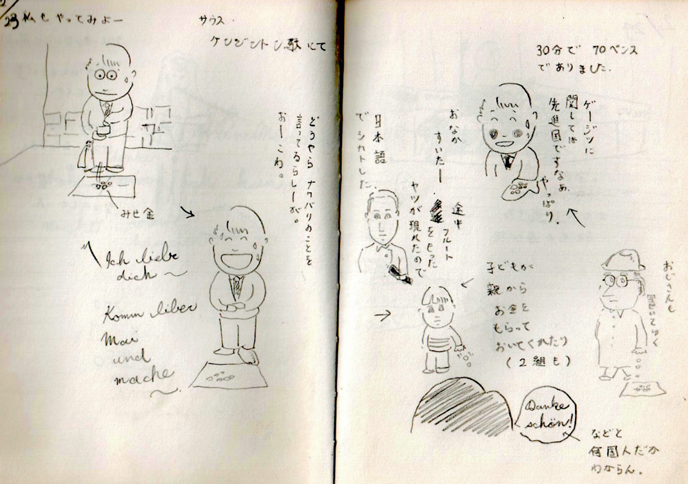 23 私もやってみよー
サウス・
ケンジントン駅にて
みせ金
Ich liebe
dich〜
Komm lieber
Mai
und
mache〜
どうやらナワバリのことを
言ってるらしーが。
おーこわ。
30分で 70ペンス
でありました.
ゲージツに
関しては
先進国ですなぁ、
やっぱり.
おなか
すいたー
日本語
でシカトした.
途中
フルート
をもった
ヤツが現れたので
子どもが
親から
お金を
もらって
おいてくれたり
(2組も)
おじさんも
置いてゆく
Danke
schön!
などと
何国人だか
わからん.